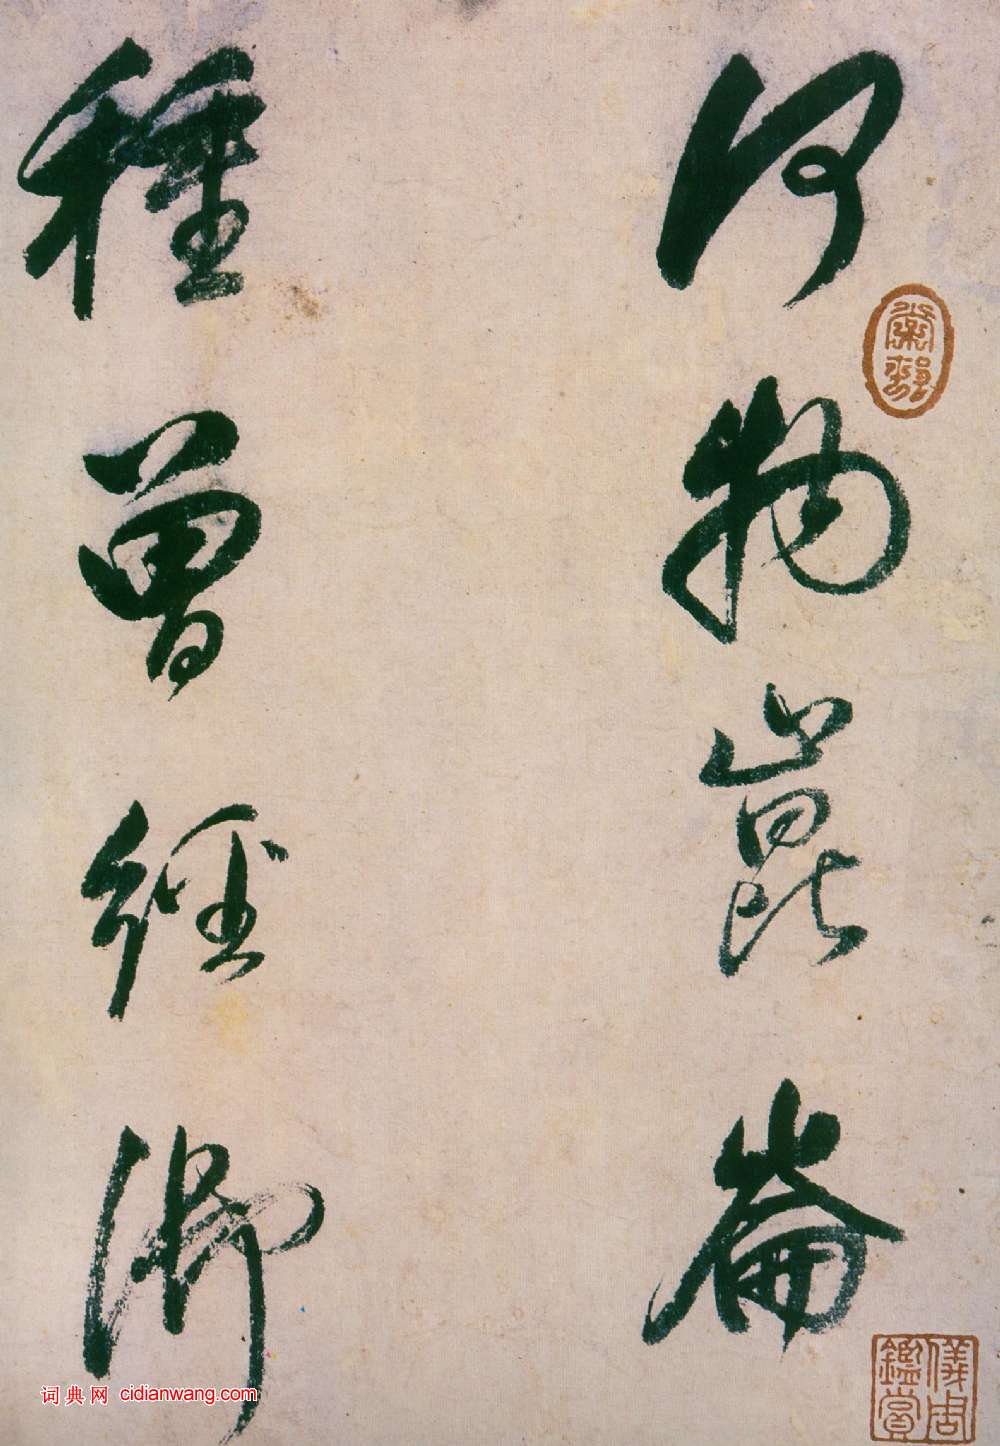 何物崑崙
種曾經御
棠邨
儀周鑑賞
词典网 cidianwang.com